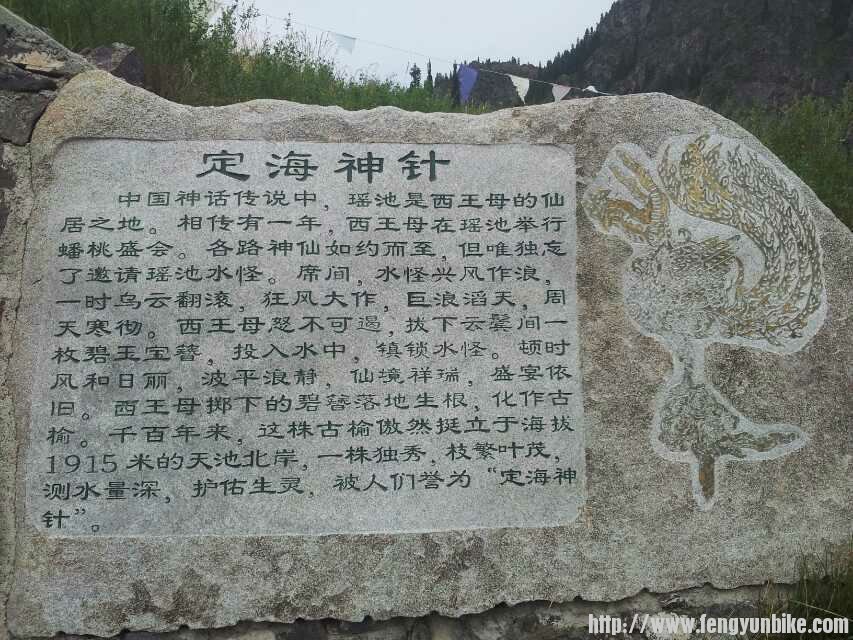 定海神针
中国神话传说中，瑶池是西王母的仙
居之地。相传有一年，西王母在瑶池举行
蟠桃盛会。各路神仙如约而至，但唯独忘
了邀请瑶池水怪。席间，水怪兴风作浪，
一时乌云翻滚，狂风大作，巨浪滔天，周
天寒彻。西王母怒不可遏，拔下云鬓间一
枚碧玉宝簪，投入水中，镇锁水怪。顿时
风和日丽，波平浪静，仙境祥瑞，盛宴依
旧。西王母掷下的碧簪落地生根，化作古
榆。千百年来，这株古榆傲然挺立于海拔
1915米的天池北岸，一株独秀，枝繁叶茂，
测水量深，护佑生灵，被人们誉为“定海神
针”。
http://www.fengyunbike.com